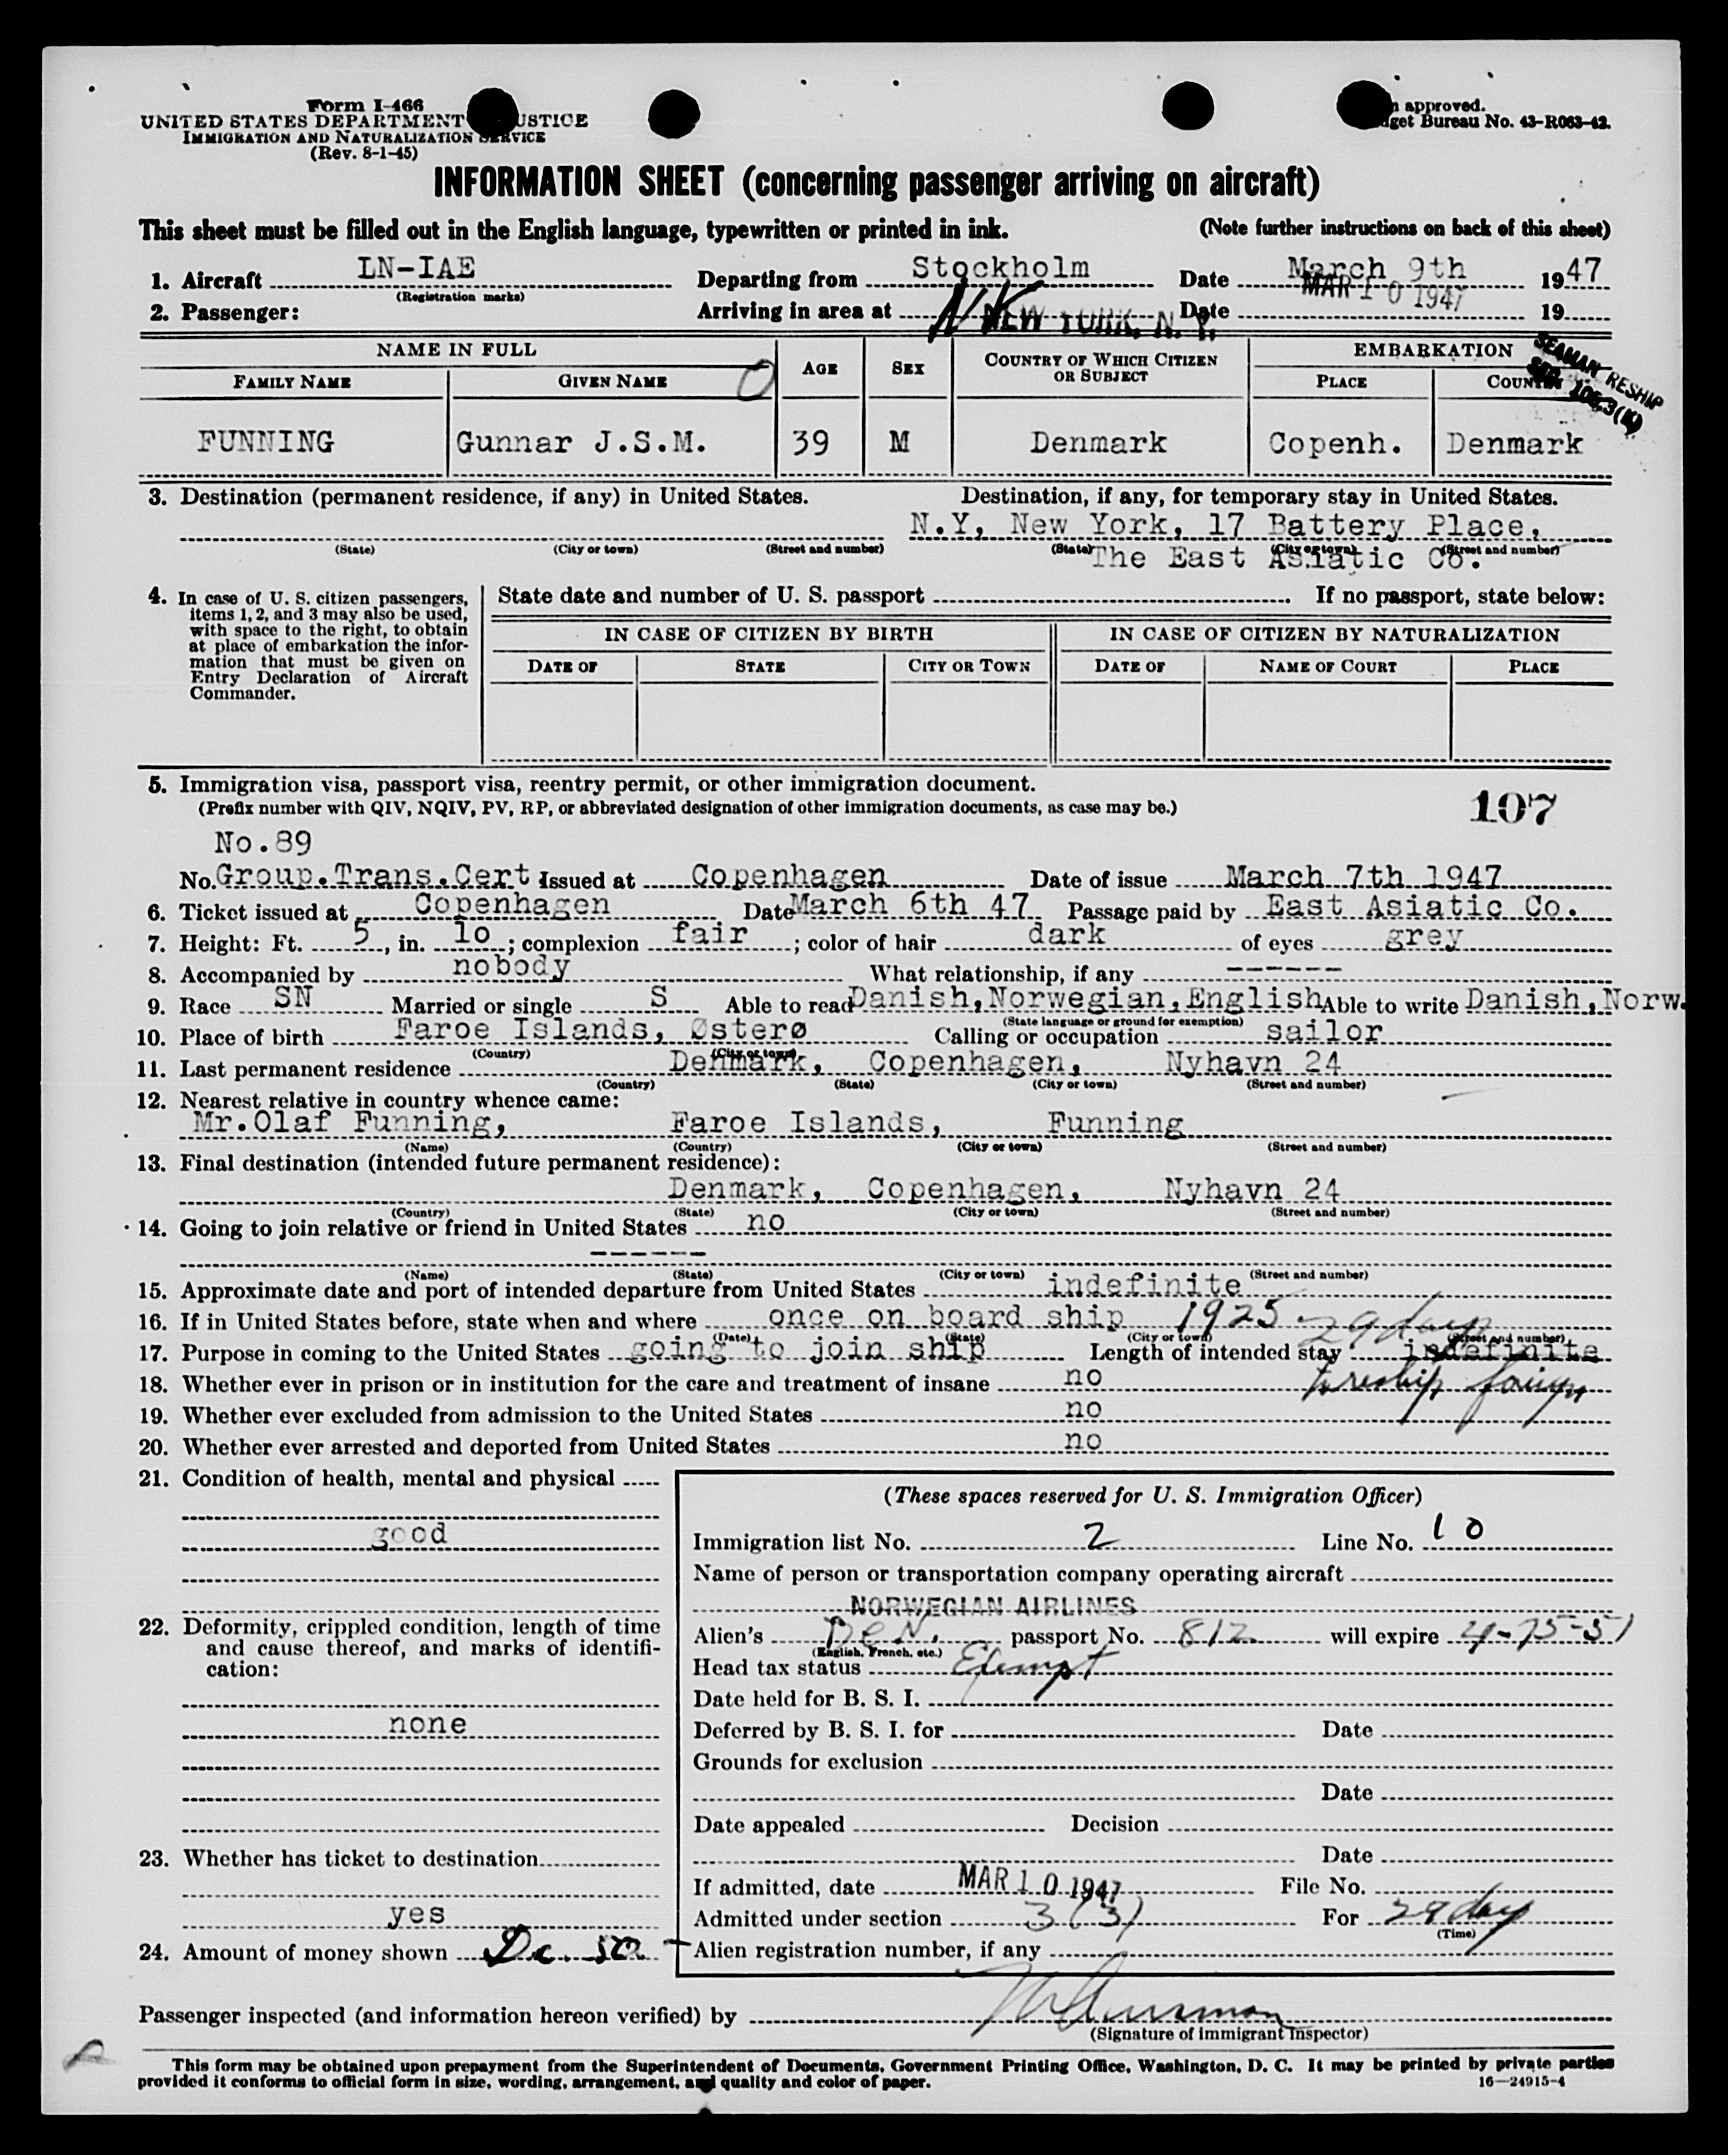 Form I-466
UNITED STATES DEPARTMENT USTICE
IMMIGRATION AND NATURALIZATION SERVICE
(Rev. 8-1-45)
approved.
get Bureau No. 43-R063-42.
INFORMATION SHEET (concerning passenger arriving on aircraft)
This sheet must be filled out in the English language, typewritten or printed in ink. (Note further instructions on back of this sheet)
1. Aircraft LN-IAE Departing from Stockholm Date March 9th 1947
(Registration marks) MAR 10 1947
2. Passenger: Arriving in area at NEW YORK, N. Y. Date 19
NAME IN FULL AGE SEX COUNTRY OF WHICH CITIZEN OR SUBJECT EMBARKATION
FAMILY NAME GIVEN NAME PLACE COUNTRY
SEAMAN RESHIP
FUNNING Gunnar J.S.M. 39 M Denmark Copenh. Denmark
3. Destination (permanent residence, if any) in United States. Destination, if any, for temporary stay in United States.
N.Y, New York, 17 Battery Place,
(State) (City or town) (Street and number) (State) (City or town) (Street and number)
The East Asiatic Co.
4. In case of U. S. citizen passengers, items 1, 2, and 3 may also be used, with space to the right, to obtain at place of embarkation the information that must be given on Entry Declaration of Aircraft Commander.
State date and number of U. S. passport If no passport, state below:
IN CASE OF CITIZEN BY BIRTH IN CASE OF CITIZEN BY NATURALIZATION
DATE OF STATE CITY OR TOWN DATE OF NAME OF COURT PLACE
5. Immigration visa, passport visa, reentry permit, or other immigration document.
(Prefix number with QIV, NQIV, PV, RP, or abbreviated designation of other immigration documents, as case may be.) 107
No.89
No. Group.Trans.Cert Issued at Copenhagen Date of issue March 7th 1947
6. Ticket issued at Copenhagen Date March 6th 47 Passage paid by East Asiatic Co.
7. Height: Ft. 5, in. 10; complexion fair; color of hair dark of eyes grey
8. Accompanied by nobody What relationship, if any ------
9. Race SN Married or single S Able to read Danish,Norwegian,English Able to write Danish,Norw.
(State language or ground for exemption)
10. Place of birth Faroe Islands, Østerø Calling or occupation sailor
(Country) (City or town)
11. Last permanent residence Denmark, Copenhagen, Nyhavn 24
(Country) (State) (City or town) (Street and number)
12. Nearest relative in country whence came:
Mr.Olaf Funning, Faroe Islands, Funning
(Name) (Country) (City or town) (Street and number)
13. Final destination (intended future permanent residence):
Denmark, Copenhagen, Nyhavn 24
(Country) (State) (City or town) (Street and number)
14. Going to join relative or friend in United States no
------
(Name) (State) (City or town) (Street and number)
15. Approximate date and port of intended departure from United States indefinite
16. If in United States before, state when and where once on board ship 1925 29 days
(Date) (State) (City or town) (Street and number)
17. Purpose in coming to the United States going to join ship Length of intended stay indefinite
to reship foreign
18. Whether ever in prison or in institution for the care and treatment of insane no
19. Whether ever excluded from admission to the United States no
20. Whether ever arrested and deported from United States no
21. Condition of health, mental and physical
good
22. Deformity, crippled condition, length of time and cause thereof, and marks of identification:
none
23. Whether has ticket to destination
yes
24. Amount of money shown
(These spaces reserved for U. S. Immigration Officer)
Immigration list No. 2 Line No. 10
Name of person or transportation company operating aircraft
NORWEGIAN AIRLINES
Alien's Den. passport No. 812 will expire
(English, French, etc.)
Head tax status Exempt
Date held for B. S. I.
Deferred by B. S. I. for Date
Grounds for exclusion
Date
Date appealed Decision
Date
If admitted, date MAR 10 1947 File No.
Admitted under section 3(3) For 29 day
(Time)
Alien registration number, if any
Passenger inspected (and information hereon verified) by
(Signature of Immigrant Inspector)
This form may be obtained upon prepayment from the Superintendent of Documents, Government Printing Office, Washington, D. C. It may be printed by private parties
provided it conforms to official form in size, wording, arrangement, and quality and color of paper. 16—24915-4